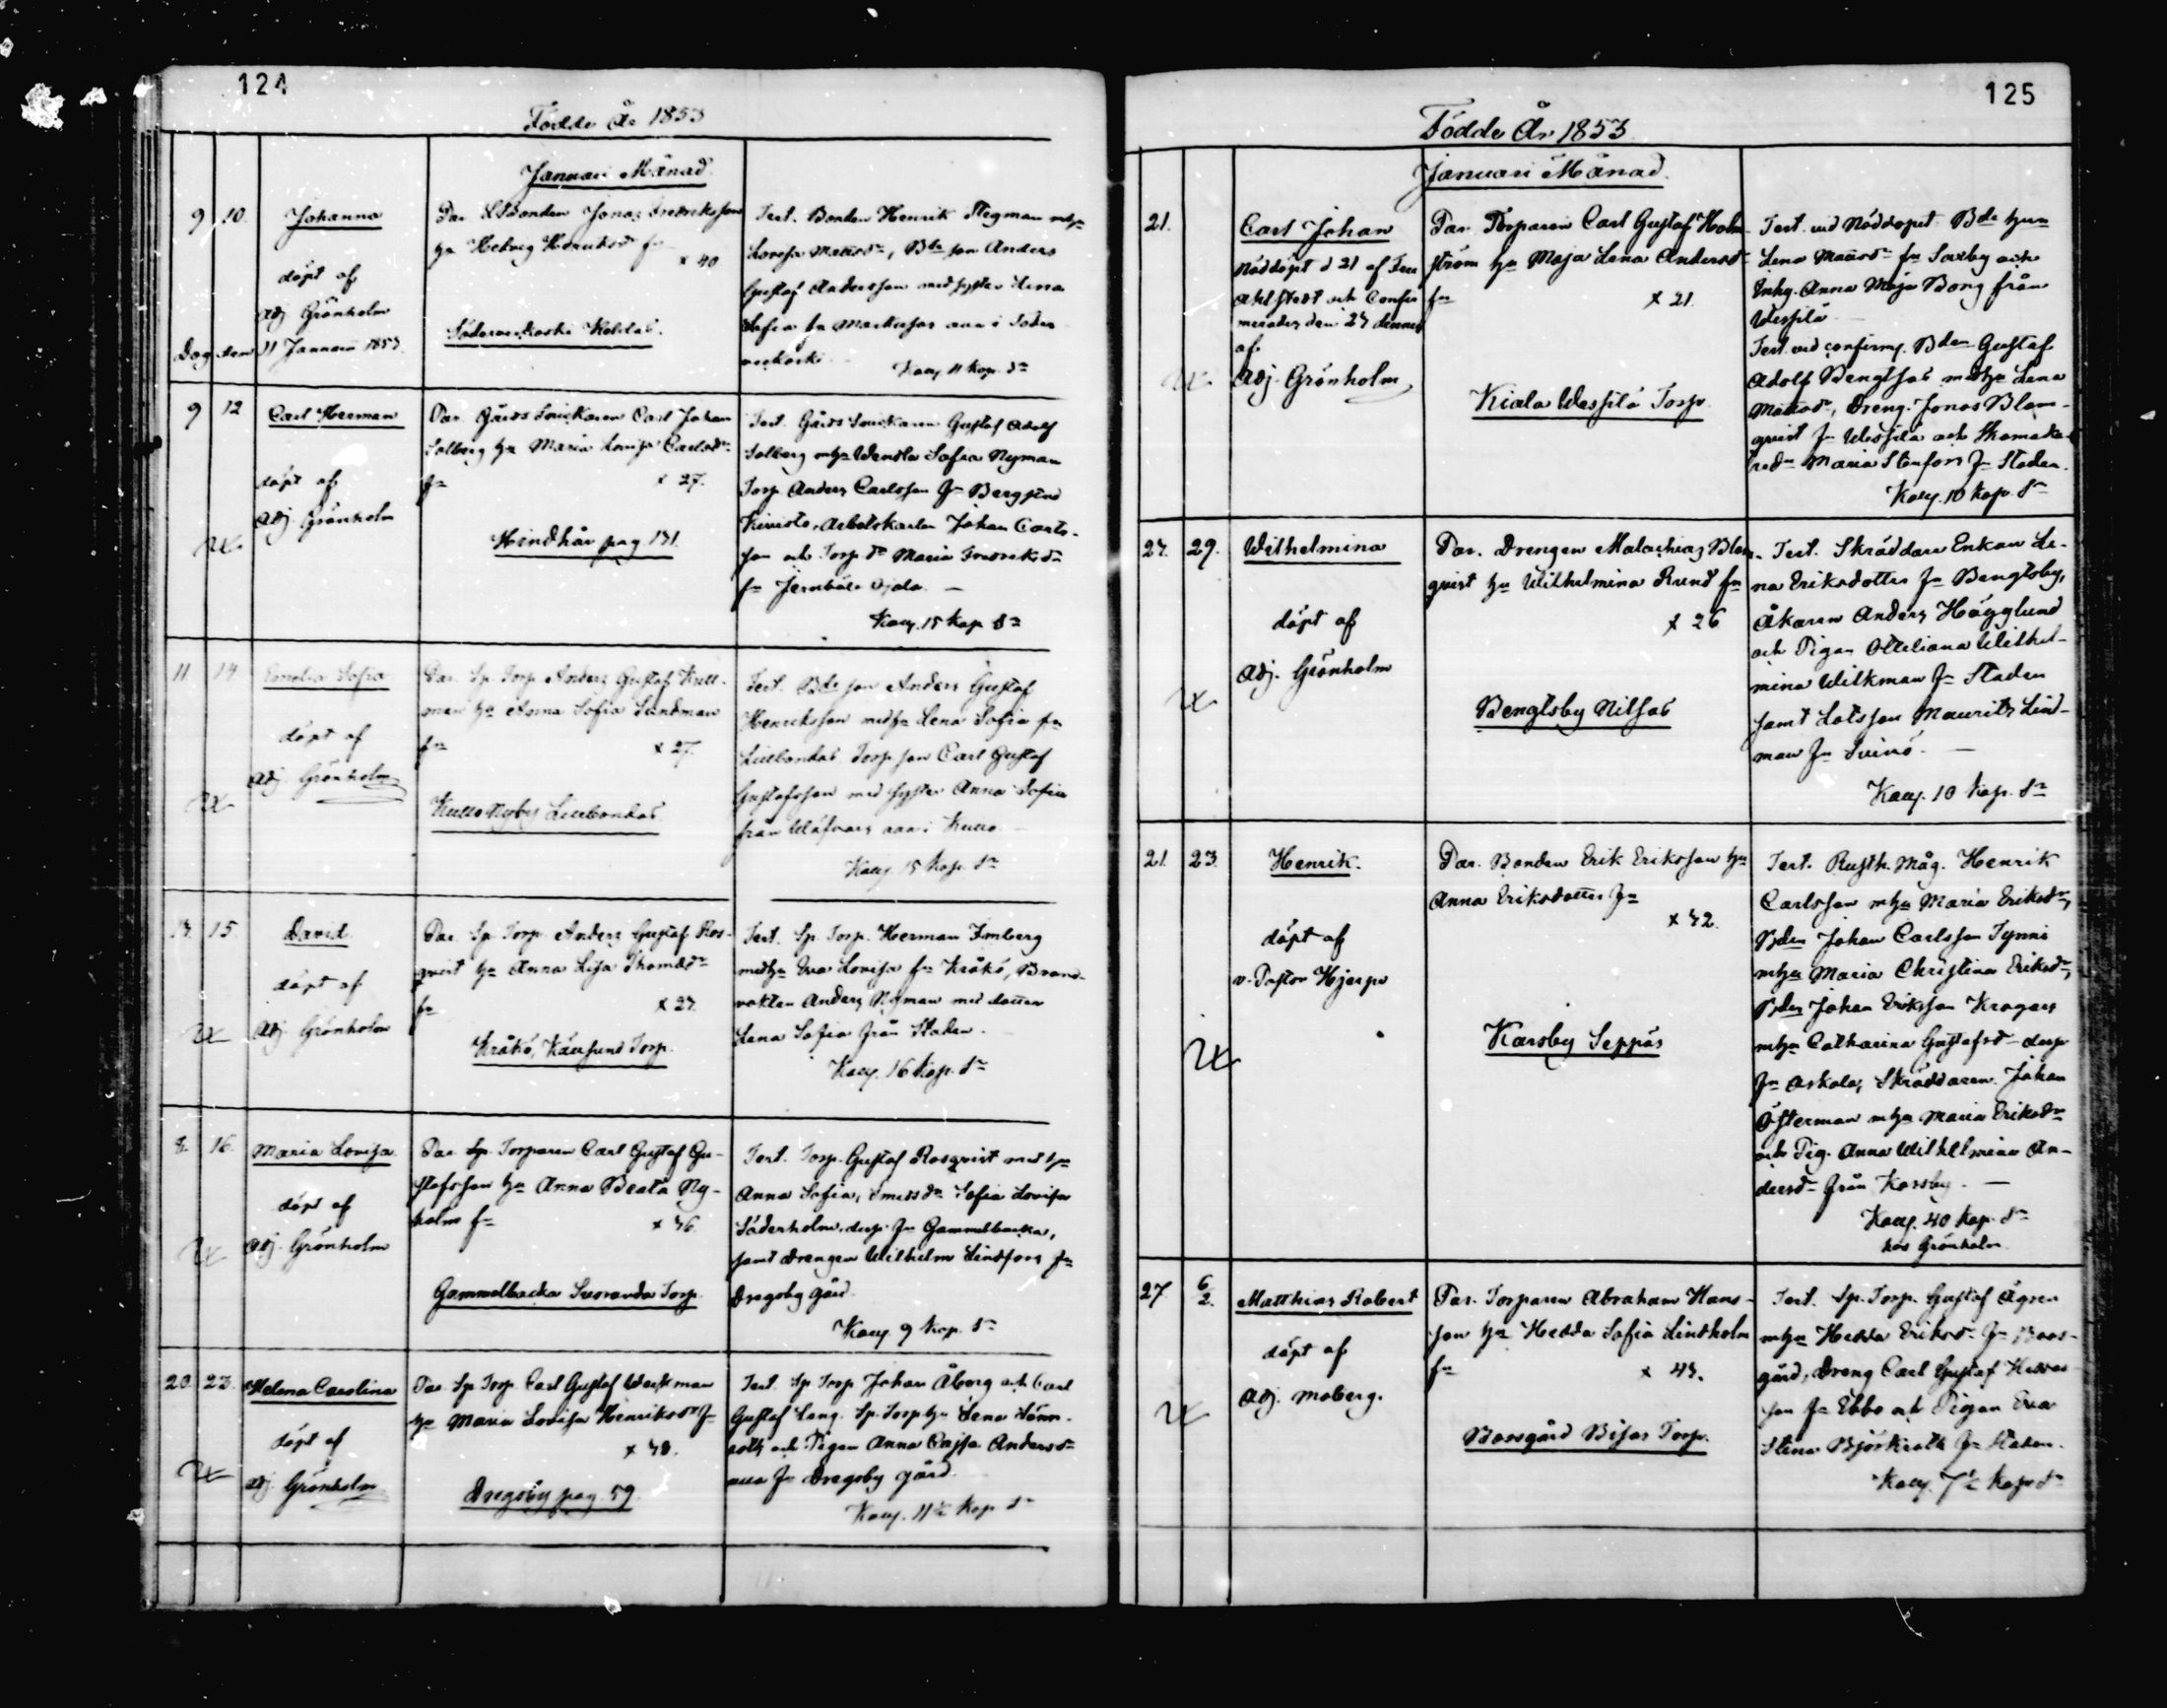 124
Födde År 1853
Januari Månad
9 10. Johanna
döpt af
Adj Grönholm
11 Januari 1853
Par. Bonden Jonas Fredriksson
hu Hedvig Henriksdr fn
x 40
Test. Bonden Henrik Stegman mhu
Lovisa Mattsdr, Bde son Anders
Gustaf Andersson med syster Lena
Sofia fn Markusas aaa i Söder
veckoski
Kauf. 11 Kop. Sr
9 12 Carl Herman
döpt af
Adj. Grönholm
Par. Gårds Snickaren Carl Johan
Solberg hu Maria Lovisa Carlsdr
fn x 27.
Hindhår pag 131.
Test. Gårds Snickaren Gustaf Adolf
Solberg mhu Wendla Sofia Nyman
Torp. Anders Carlsson fn Bergstad
Kivistö, Arbetskarlen Johan Carls-
son och Torp dr Maria Fredriksdr
fn Jernböle Ojala. —
Kauf. 15 Kop Sr
11 14 Emelia Sofia
döpt af
Adj. Grönholm
Par. Sp. Torp Anders Gustaf Kull-
man hu Anna Sofia Sundman
fn x 27.
Kullo Nyby Lillbondas
Test. Bde son Anders Gustaf
Henriksson medhu Lena Sofia fn
Lillbondas Torp son Carl Gustaf
Gustafsson med syster Anna Sofia
från Uläfvars aaa i Kullo. —
Kauf. 15 Kop. Sr
13. 15 David
döpt af
Adj Grönholm
Par. Sp Torp Anders Gustaf Ros-
qvist hu Anna Lisa Thomasdr
fn x 27.
Kråkö, Källsund Torp.
Test. Sp. Torp. Herman Imberg
medhu Eva Lovisa fn Kråkö, Brand-
vakten Anders Nyman med dottren
Lena Sofia från Staden.
Kauf. 16 Kop. Sr
8. 16. Maria Lovisa
döpt af
Adj. Grönholm
Par. Sp. Torparen Carl Gustaf Gu-
stafsson hu Anna Beata Ny-
holm fn x 36.
Gammelbacka Svoranda Torp
Test. Torp. Gustaf Rosqvist med hu
Anna Sofia, Smedsdr Sofia Lovisa
Söderholm. dersp. fn Gammelbacka,
samt Drengen Wilhelm Lindfors fn
Dregsby gård.
Kauf. 9 Kop. Sr
20. 23. Helena Carolina
döpt af
Adj. Grönholm
Par. Sp Torp Carl Gustaf Werkman
hu Maria Lovisa Henriksdr fn
x 38.
Dregsby pag. 59
Test. Sp Torp Johan Åberg och Carl
Gustaf Lang. Sp. Torp hu Lena Lönn-
roth och Pigan Anna Cajsa Andersdr
alla fn Dregsby gård.
Kauf. 11½ Kop Sr
125
Födde År 1853
Januari Månad.
21. Carl Johan
Nöddöpt d 21 af Fru
Ahlstedt och Confir
merades den 27 dennes
af
Adj. Grönholm
Par. Torparen Carl Gustaf Holm-
ström hu Maja Lena Andersdr
fn x 21.
Kiala Wessilä Torp
Test. vid Nöddopet Bde hun
Lena Mattsdr fn Saxby och
Enkg. Anna Maja Bong från
Wessilä
Test. vid confirm. Bden Gustaf
Adolf Bengtsas medhu Lena
Mattsdr, Dreng. Jonas Blom-
qvist fn Wessilä och Skomaka-
redr Maria Stenfors fn Staden.
Kauf. 10 Kop. Sr
27. 29. Wilhelmina
döpt af
Adj. Grönholm
Par. Drengen Malachias Blom-
qvist hu Wilhelmina Rund fn
x 26
Bengtsby Nilsas
Test. Skräddare Enkan Le-
na Eriksdotter fn Bengtsby,
Åkaren Anders Högglund
och Pigan Otteliana Wilhel-
mina Wilkman fn Staden
samt Lotsson Mauritz Lind-
man fn Svinö. —
Kauf. 10 Kop. Sr
21. 23. Henrik.
döpt af
v. Pastor Hjerpe
Par. Bonden Erik Eriksson hu
Anna Eriksdotter fn
x 32.
Karsby Seppäs
Test. Rusth. Måg. Henrik
Carlsson mhu Maria Eriksdr,
Bden Johan Carlsson Tynni
mhu Maria Christina Eriksdr,
Bden Johan Eriksson Krogars
mhu Catharina Gustafsdr dersp
fn Askola, Skräddaren Johan
Österman mhu Maria Eriksdr
och Pig. Anna Wilhelmina An-
dersdr från Karsby. —
Kauf. 40 Kop. Sr
hos Grönholm
27 6/2. Matthias Robert
döpt af
Adj. Moberg.
Par. Torparen Abraham Hans-
son hu Hedda Sofia Lindholm
fn x 43.
Bossgård Bisas Torp.
Test. Sp. Torp. Gustaf Ågren
mhu Hedda Eriksdr fn Boss-
gård, Dreng Carl Gustaf
son fn Ebbo och Pigan Eva
Stina Björkroth fn Staden.
Kauf. 7½ Kop Sr